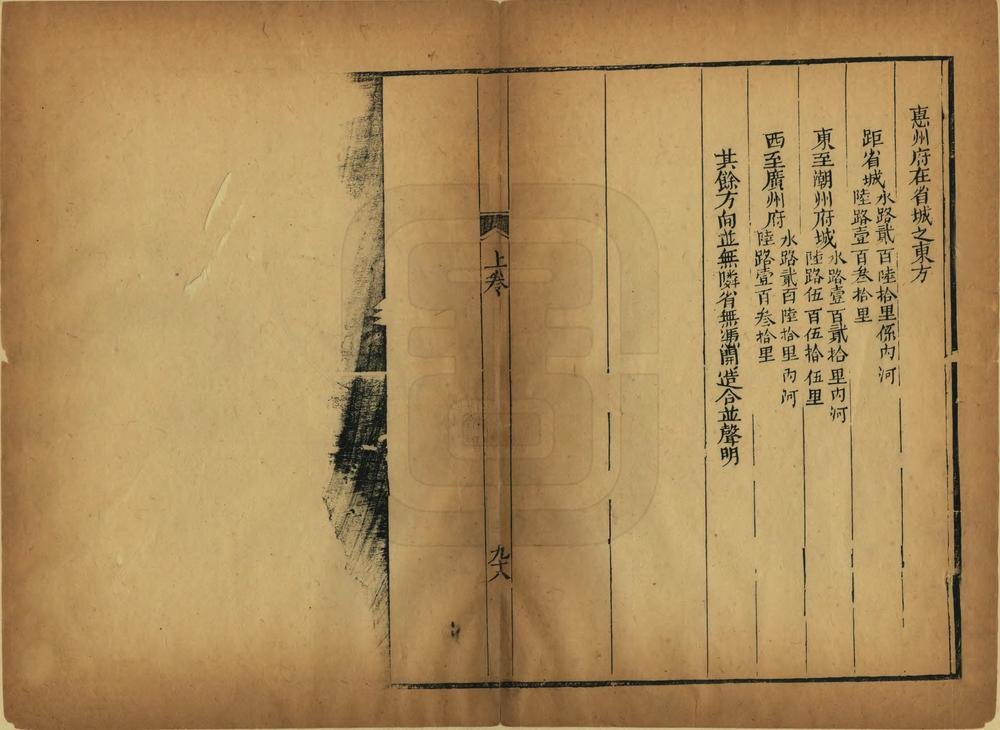 惠州府在省城之東方
距省城水路貳百陸拾里係內河
陸路壹百叁拾里
東至潮州府城水路壹百貳拾里內河
陸路伍百伍拾伍里
西至廣州府水路貳百陸拾里內河
陸路壹百叁拾里
其餘方向並無隣省無憑開造合並聲明
上卷
九十八